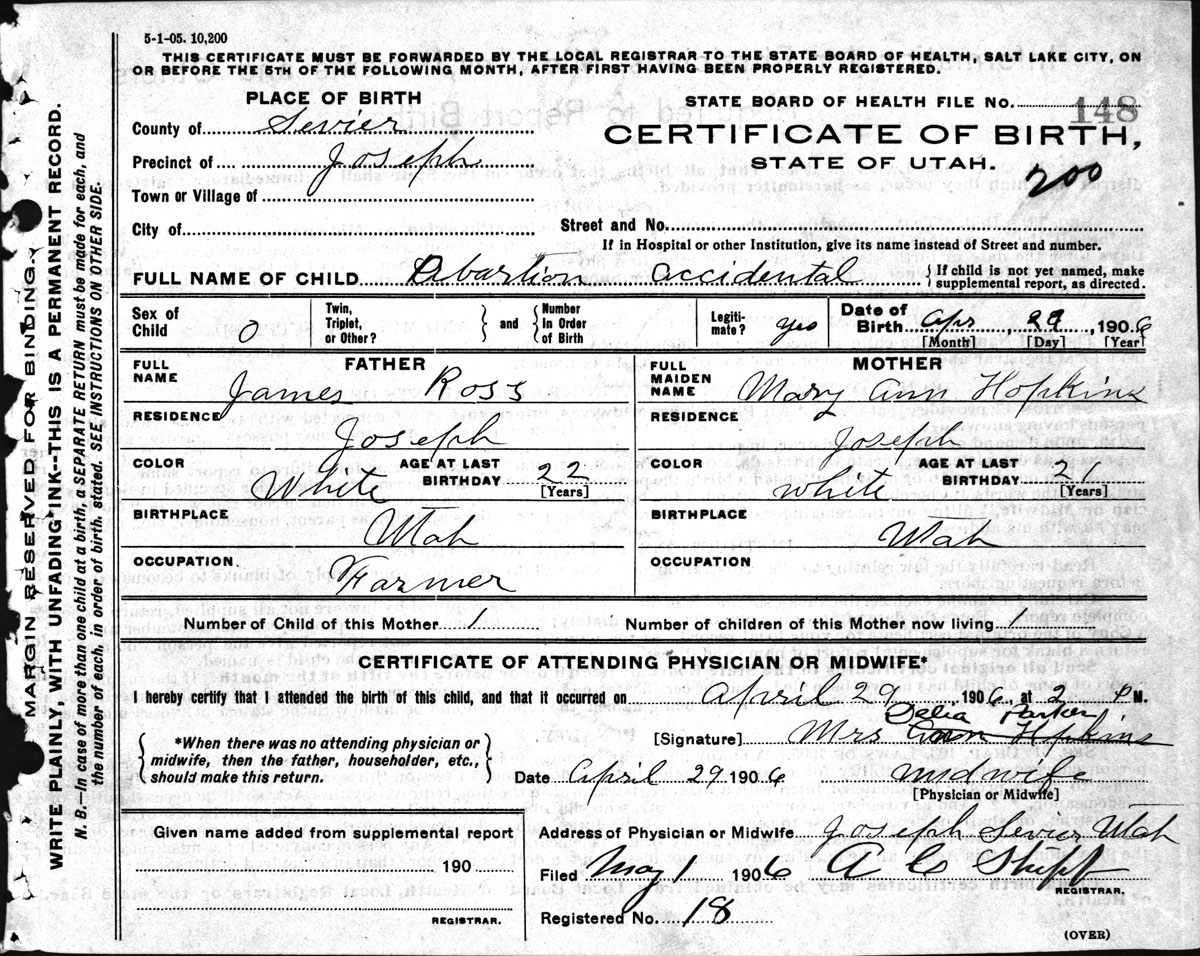 5-1-05. 10,200
THIS CERTIFICATE MUST BE FORWARDED BY THE LOCAL REGISTRAR TO THE STATE BOARD OF HEALTH, SALT LAKE CITY, ON
OR BEFORE THE 5TH OF THE FOLLOWING MONTH, AFTER FIRST HAVING BEEN PROPERLY REGISTERED.
PLACE OF BIRTH
STATE BOARD OF HEALTH FILE No. 148
County of Sevier
CERTIFICATE OF BIRTH,
Precinct of Joseph
STATE OF UTAH.
200
Town or Village of
City of
Street and No.
If in Hospital or other Institution, give its name instead of Street and number.
FULL NAME OF CHILD Abartion accidental { If child is not yet named, make supplemental report, as directed.
Sex of Child 0 Twin, Triplet, or Other? } and { Number in Order of Birth Legiti-mate? yes Date of Birth Apr, 29, 1906
[Month] [Day] [Year]
FATHER
MOTHER
FULL NAME James Ross
FULL MAIDEN NAME Mary Ann Hopkins
RESIDENCE Joseph
RESIDENCE Joseph
COLOR White AGE AT LAST BIRTHDAY 22 [Years]
COLOR white AGE AT LAST BIRTHDAY 21 [Years]
BIRTHPLACE Utah
BIRTHPLACE Utah
OCCUPATION Farmer
OCCUPATION
Number of Child of this Mother 1 Number of children of this Mother now living 1
CERTIFICATE OF ATTENDING PHYSICIAN OR MIDWIFE*
I hereby certify that I attended the birth of this child, and that it occurred on April 29, 1906, at 2 P M.
Delia Parker
[Signature] Mrs Hopkins
{ *When there was no attending physician or midwife, then the father, householder, etc., should make this return. }
Date April 29 1906 midwife
[Physician or Midwife]
Given name added from supplemental report
190
REGISTRAR.
Address of Physician or Midwife Joseph Sevier Utah
Filed May 1 1906 A C Shipp
REGISTRAR.
Registered No. 18
(OVER)
MARGIN RESERVED FOR BINDING.
WRITE PLAINLY, WITH UNFADING INK--THIS IS A PERMANENT RECORD.
N. B.—In case of more than one child at a birth, a SEPARATE RETURN must be made for each, and
the number of each, in order of birth, stated. SEE INSTRUCTIONS ON OTHER SIDE.